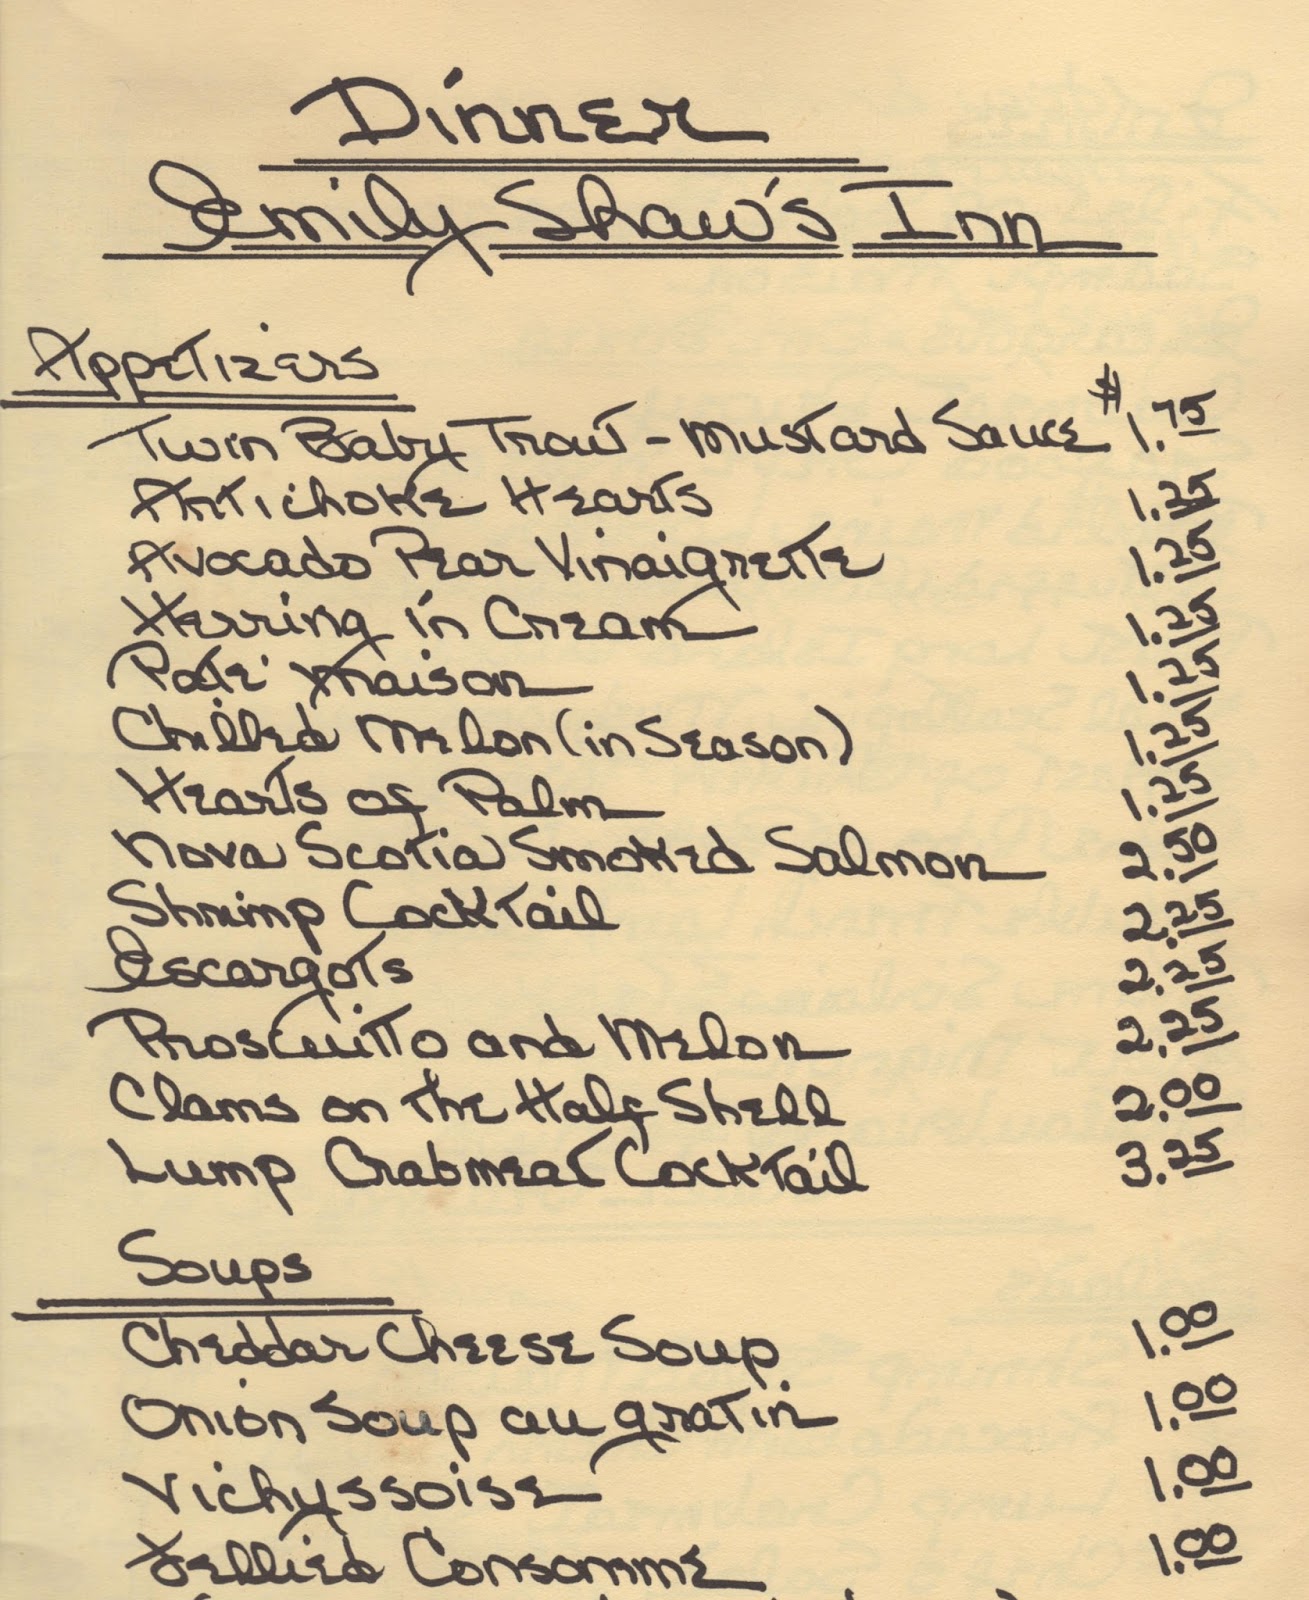 Dinner
Emily Shaw's Inn
Appetizers
Twin Baby Trout - Mustard Sauce $1.75
Artichoke Hearts 1.25
Avocado Pear Vinaigrette 1.25
Herring in Cream 1.25
Paté Maison 1.25
Chilled Melon (in Season) 1.25
Hearts of Palm 1.25
Nova Scotia Smoked Salmon 2.50
Shrimp Cocktail 2.25
Escargots 2.25
Proscuitto and Melon 2.25
Clams on the Half Shell 2.00
Lump Crabmeat Cocktail 3.25
Soups
Cheddar Cheese Soup 1.00
Onion Soup au gratin 1.00
Vichyssoise 1.00
Jellied Consomme 1.00